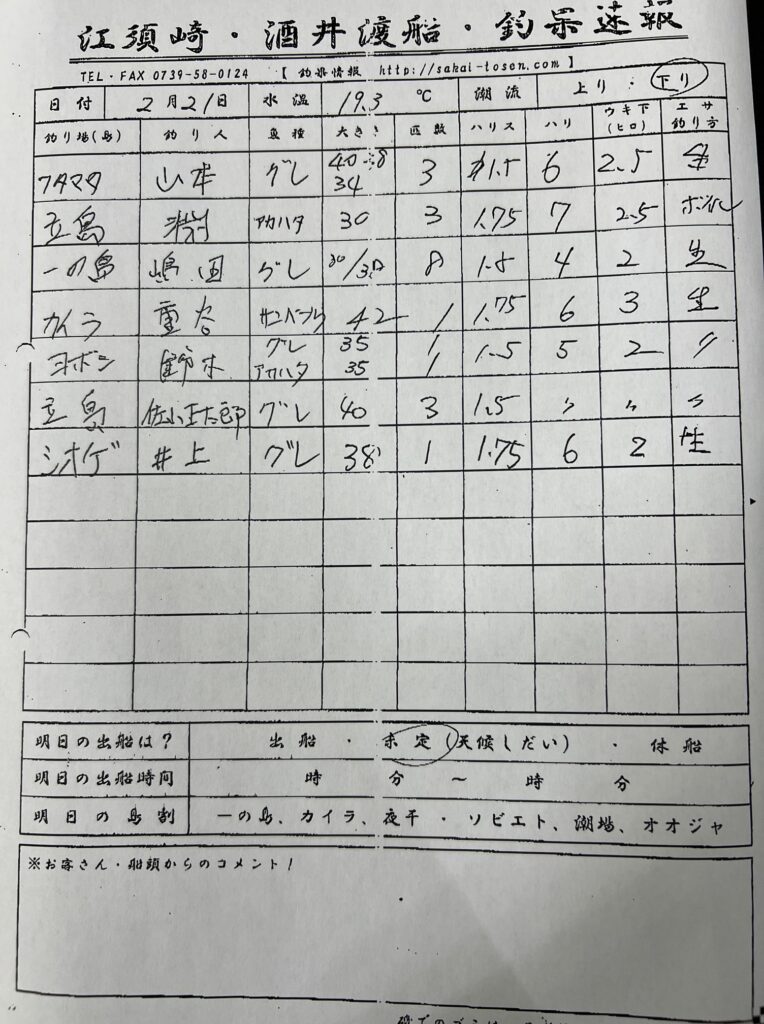 江須崎・酒井渡船・釣果速報
TEL・FAX 0739-58-0124 【 釣果情報 http://sakai-tosen.com 】
日付 2月21日 水温 19.3 ℃ 潮流 上り・下り
釣り場(島) 釣り人 魚種 大きさ 匹数 ハリス ハリ ウキ下(ヒロ) エサ釣り方
フタマタ 山本 グレ 40 38 34 3 1.5 6 2.5 生
立島 アカハタ 30 3 1.75 7 2.5 ボイル
一の島 嶋田 グレ 30/38 8 1.5 4 2 生
カイラ 重谷 サンバソウ 42 1 1.75 6 3 生
ヨボシ 野木 グレ 35 1 1.5 5 2 〃
アカハタ 35 1
立島 佐山正太郎 グレ 40 3 1.5 〃 〃 〃
シオゲ 井上 グレ 38 1 1.75 6 2 生
明日の出船は? 出船・未定(天候しだい)・休船
明日の出船時間 時 分 ~ 時 分
明日の島割 一の島、カイラ、夜干・ソビエト、潮場、オオジャ
※お客さん・船頭からのコメント!